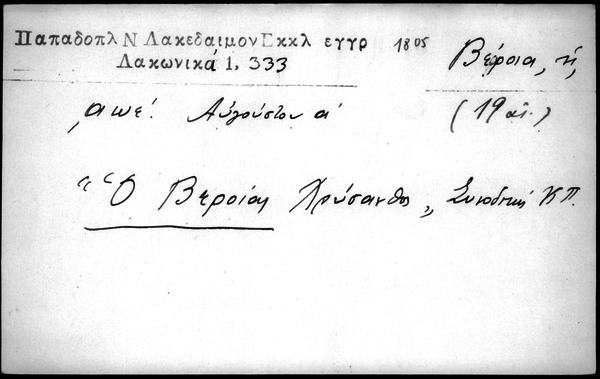 Παπαδοπλ Ν Λακεδαιμον Εκκλ εγγρ 1805
Λακωνικά 1, 333
Βέροια, ἡ
͵αωέ. Αὐγούστου α΄ (19 αἰ.)
"Ὁ Βεροίας Χρύσανθος" Συνοδικὴ ΚΠ.